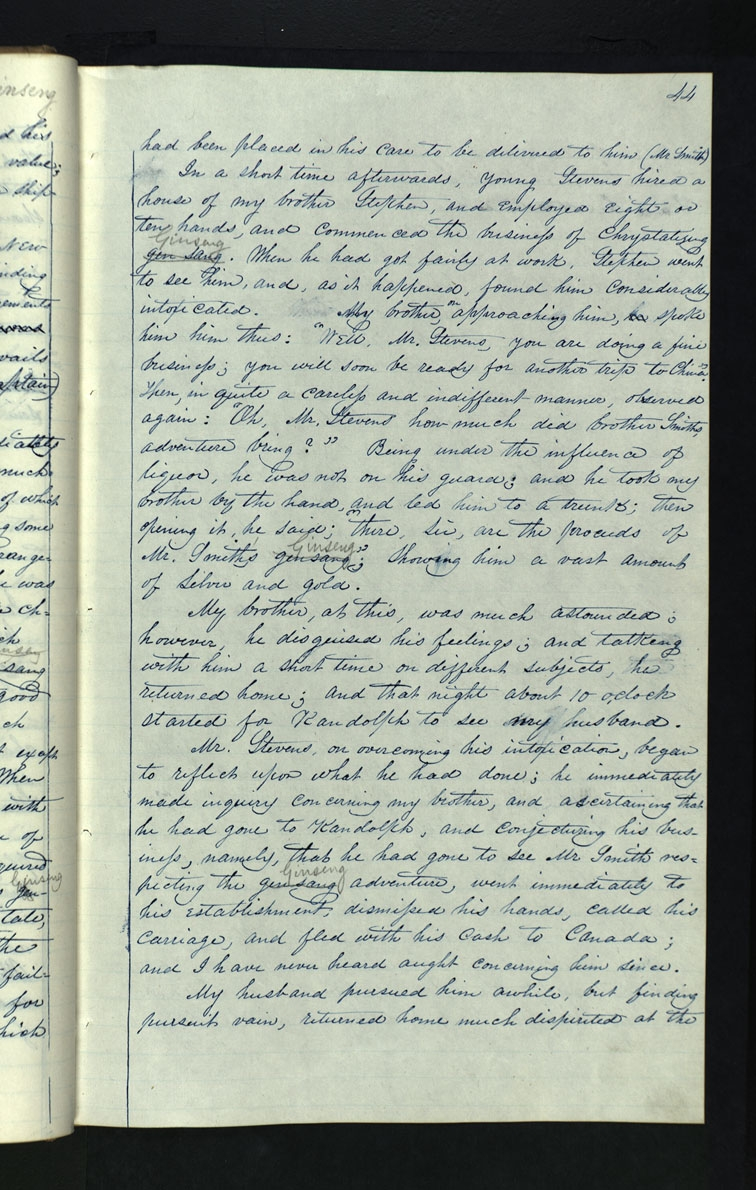 44
had been placed in his care to be dilivered to him (Mr Smith)
In a short time afterwards, young Stevens hired a
house of my brother Stephen, and employed eight or
ten hands, and commenced the business of Chrystalizing
Ginseng
gen sang. When he had got fairly at work, Stephen went
to see him, and, as it happened, found him considerably
intoxicated. My brother, on approaching him, he spoke
him him thus: "Well, Mr. Stevens, you are doing a fine
business; you will soon be ready for another trip to China."
Then, in quite a careless and indifferent manner, observed
again: "Oh, Mr. Stevens how much did brother Smiths,
adventure bring?" Being under the influence of
liquor, he was not on his guard; and he took my
brother by the hand, and led him to a trunk; then
opening it, he said; "there, sir, are the proceeds of
Ginseng
Mr. Smith's gen sang;" Showing him a vast amount
of silver and gold.
My brother, at this, was much astounded;
however, he disguised his feelings; and talking
with him a short time on different subjects, he
returned home; and that night about 10 oclock
started for Randolph to see my husband.
Mr. Stevens, on overcoming his intoxication, began
to reflect upon what he had done; he immediately
made inquery concerning my brother, and ascertaining that
he had gone to Randolph, and conjecturing his bus-
iness, namely, that he had gone to see Mr Smith res=
Ginseng
pecting the gen sang adventure, went immediately to
his establishment, dismissed his hands, called his
carriage, and fled with his cash to Canada;
and I have never heard aught concerning him since.
My husband pursued him awhile, but finding
pursuit vain, returned home much dispirited at the